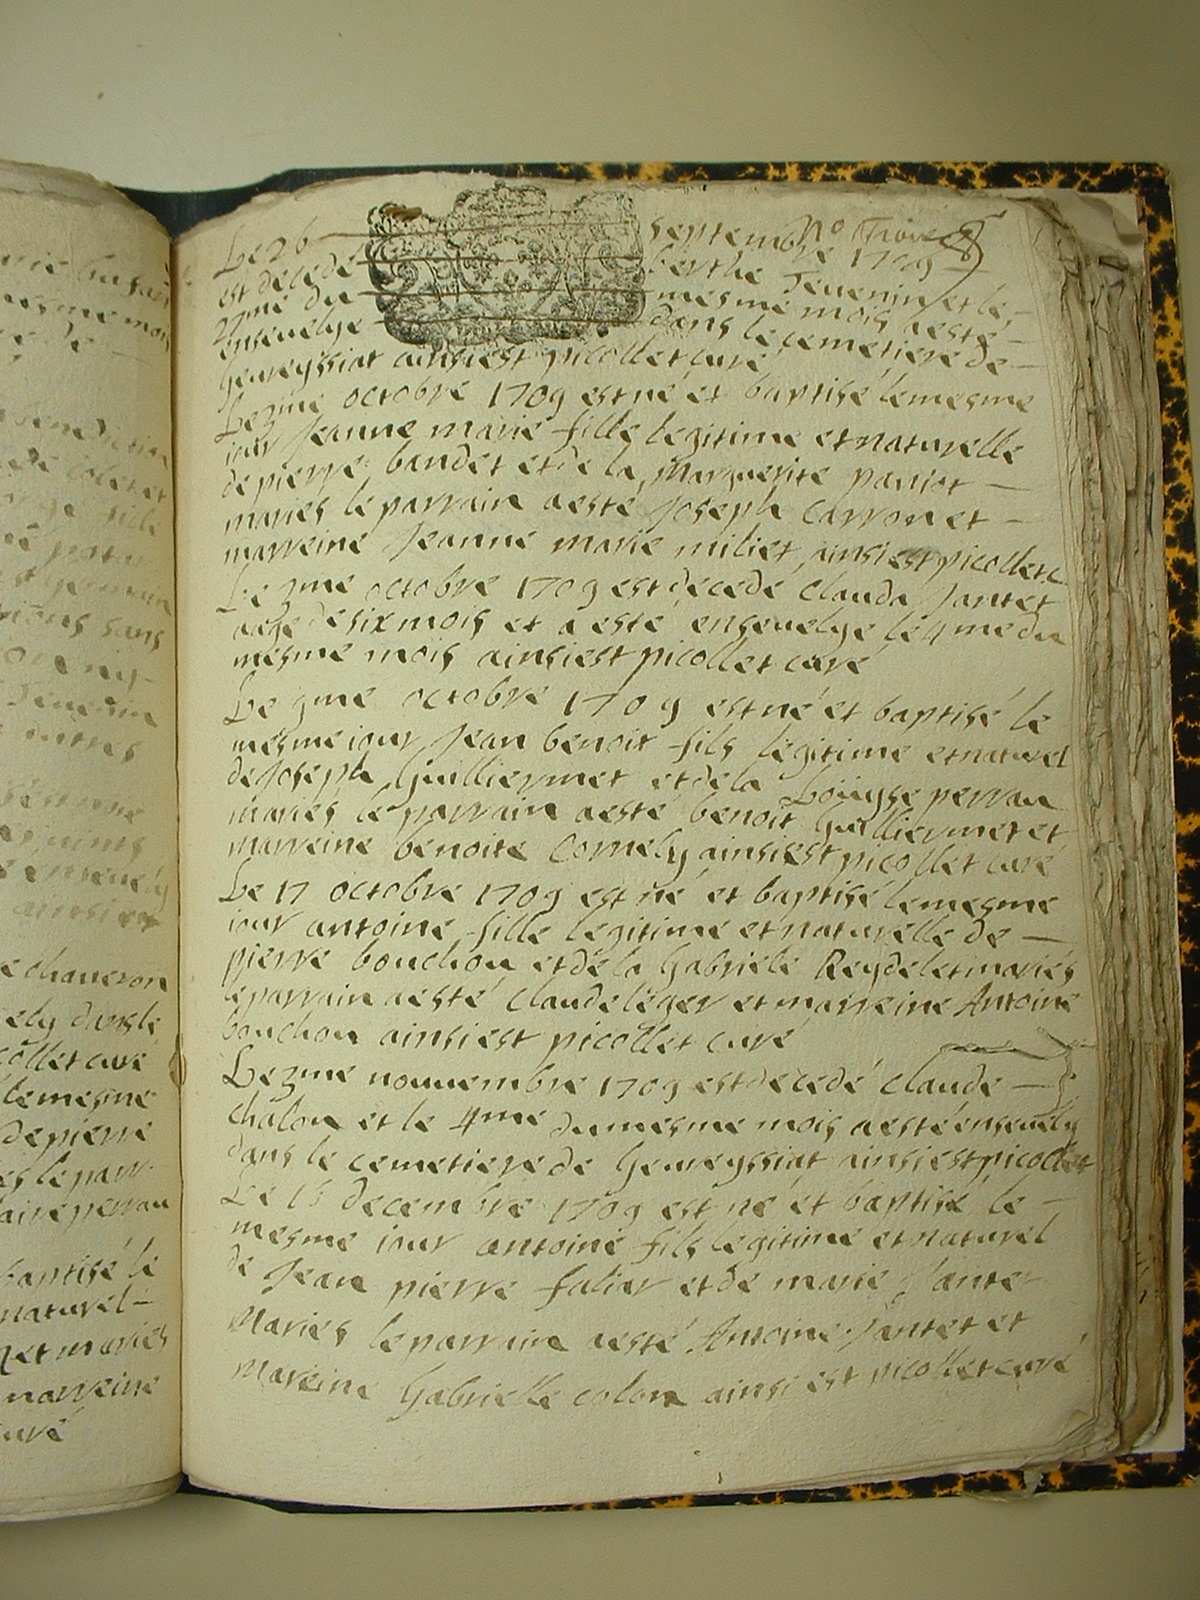 rie
mesme mois
é de —
benediction
colet et
fille
mons sans
Jeuenin
autres
enseuely
ainsi est
e chaneron
ely dans le
collet curé
lemesme
de pierre
es le parr
aire perrau
baptisé le
naturel —
et mariés
marreine
curé
Le 26 septembre 1709 —
n° Trois
est decedé berthe Jeuenin et le —
27me du mesme mois a esté —
enseuelye dans le cemetiere de —
Geureyssiat ainsi est picollet curé
Le 2me octobre 1709 est né et baptisé lemesme
iour Jeanne marie fille legitime et naturelle
de pierre baudet et de la marguerite pauiot —
mariés le parrain a esté Joseph Carron et —
marreine Jeanne marie miliet ainsi est picollet c
Le 3me octobre 1709 est decedé Clauda Jantet
aage de six mois et a esté enseuelye le 4me du
mesme mois ainsi est picollet curé
Le 9me octobre 1709 est né et baptisé le
mesme iour Jean benoit fils legitime et naturel
de Joseph Guilliermet et de la Loüyse perrau
mariés le parrain a esté benoit Guilliermet et
marreine benoite Cornely ainsi est picollet curé
Le 17 octobre 1709 est né et baptisé lemesme
iour antoine fille legitime et naturelle de —
pierre bouchon et de la Gabriele Reydelet mariés
le parrain a esté Claude leger et marreine Antoine
bouchon ainsi est picollet curé
Le 3me nouuembre 1709 est decedé Claude —
chalon et le 4me du mesme mois a esté enseuely
dans le cemetiere de Geureyssiat ainsi est picollet
Le 15 decembre 1709 est né et baptisé le —
mesme iour antoine fils legitime et naturel
de Jean pierre faliar et de marie Jantet
Mariés le parrain a esté Antoine Jantet et
Mareine Gabrielle colon ainsi est picollet curé